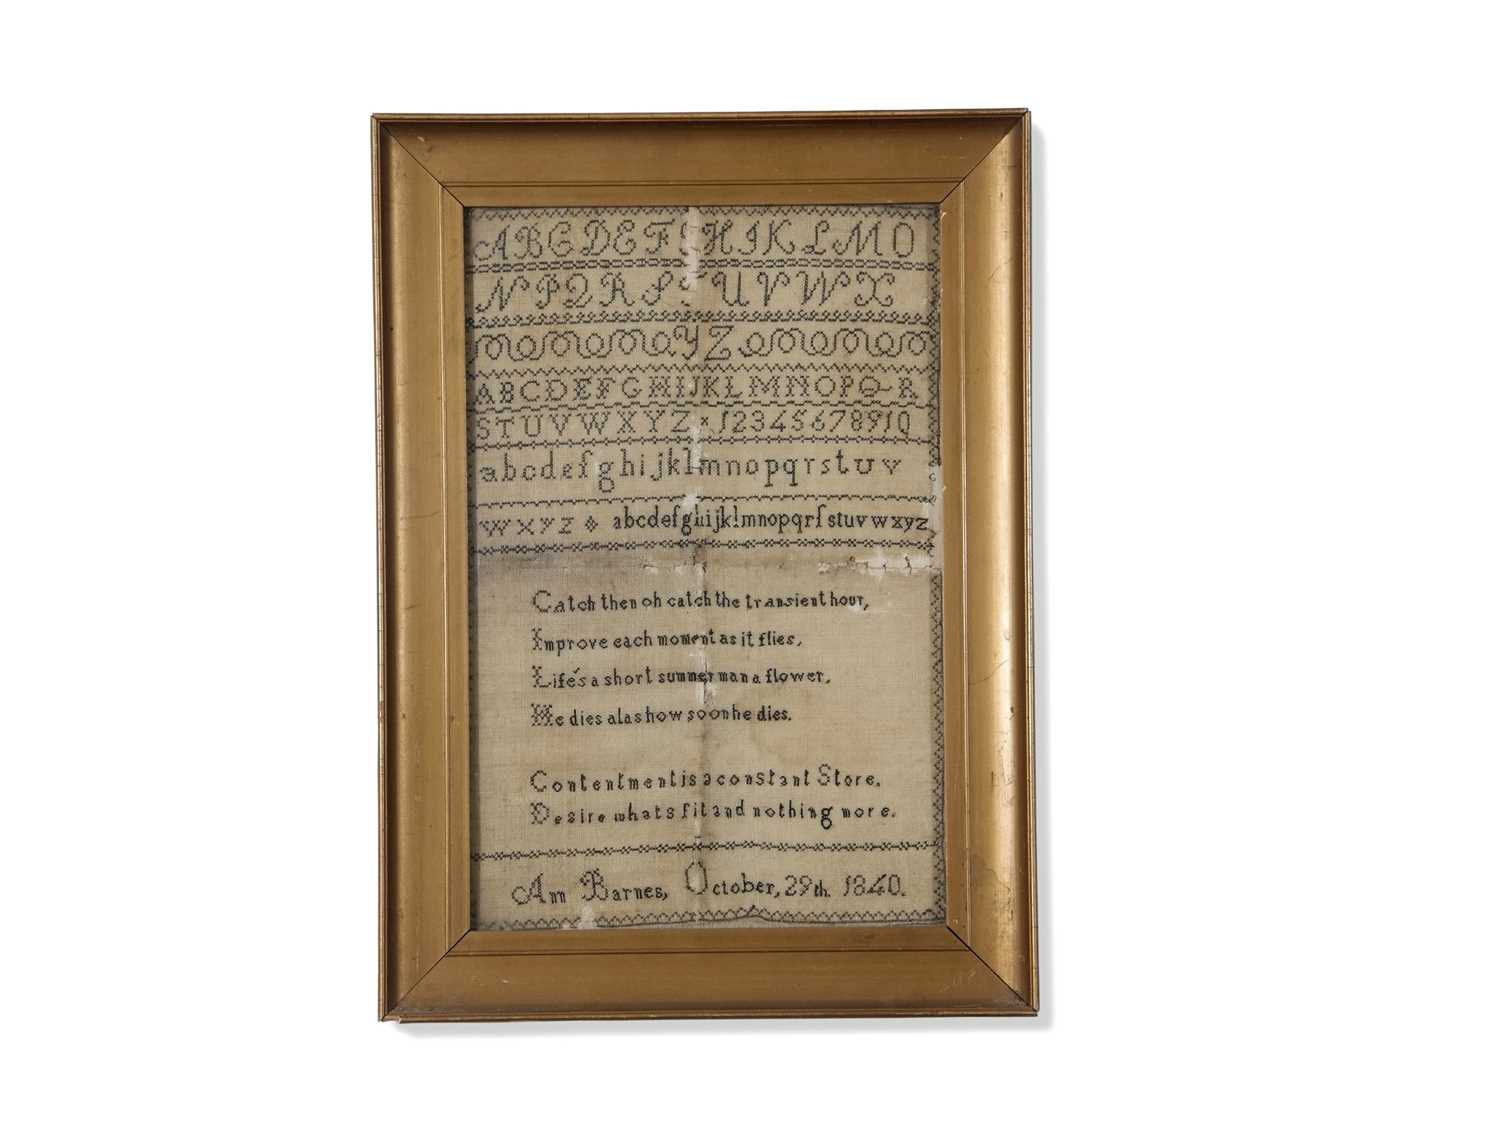 A B C D E F G H I K L M O
N P Q R S T U V W X
Y Z
A B C D E F G H I J K L M N O P Q R
S T U V W X Y Z × 1 2 3 4 5 6 7 8 9 1 0
a b c d e f g h i j k l m n o p q r s t u v
w x y z a b c d e f g h i j k l m n o p q r ſ s t u v w x y z
Catch then oh catch the transient hour,
Improve each moment as it flies,
Life's a short summer man a flower,
He dies alas how soon he dies.
Contentment is a constant Store.
Desire whats fit and nothing more.
Ann Barnes, October, 29th. 1840.